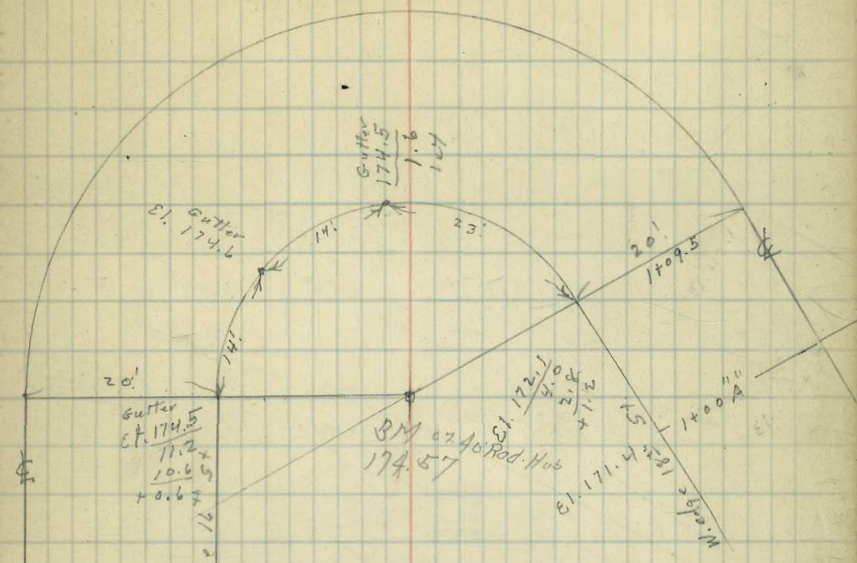 Gutter
174.5
1.6
124
El. Gutter
174.6
14'
23'
20'
1+09.5
14'
20'
Gutter
El. 174.5
11.2
10.6
+0.6
BM on Rad. Hub
174.57
El. 172.1
4.0
2.8
+1.2
1+00 "A"
El. 171.4
W. edge